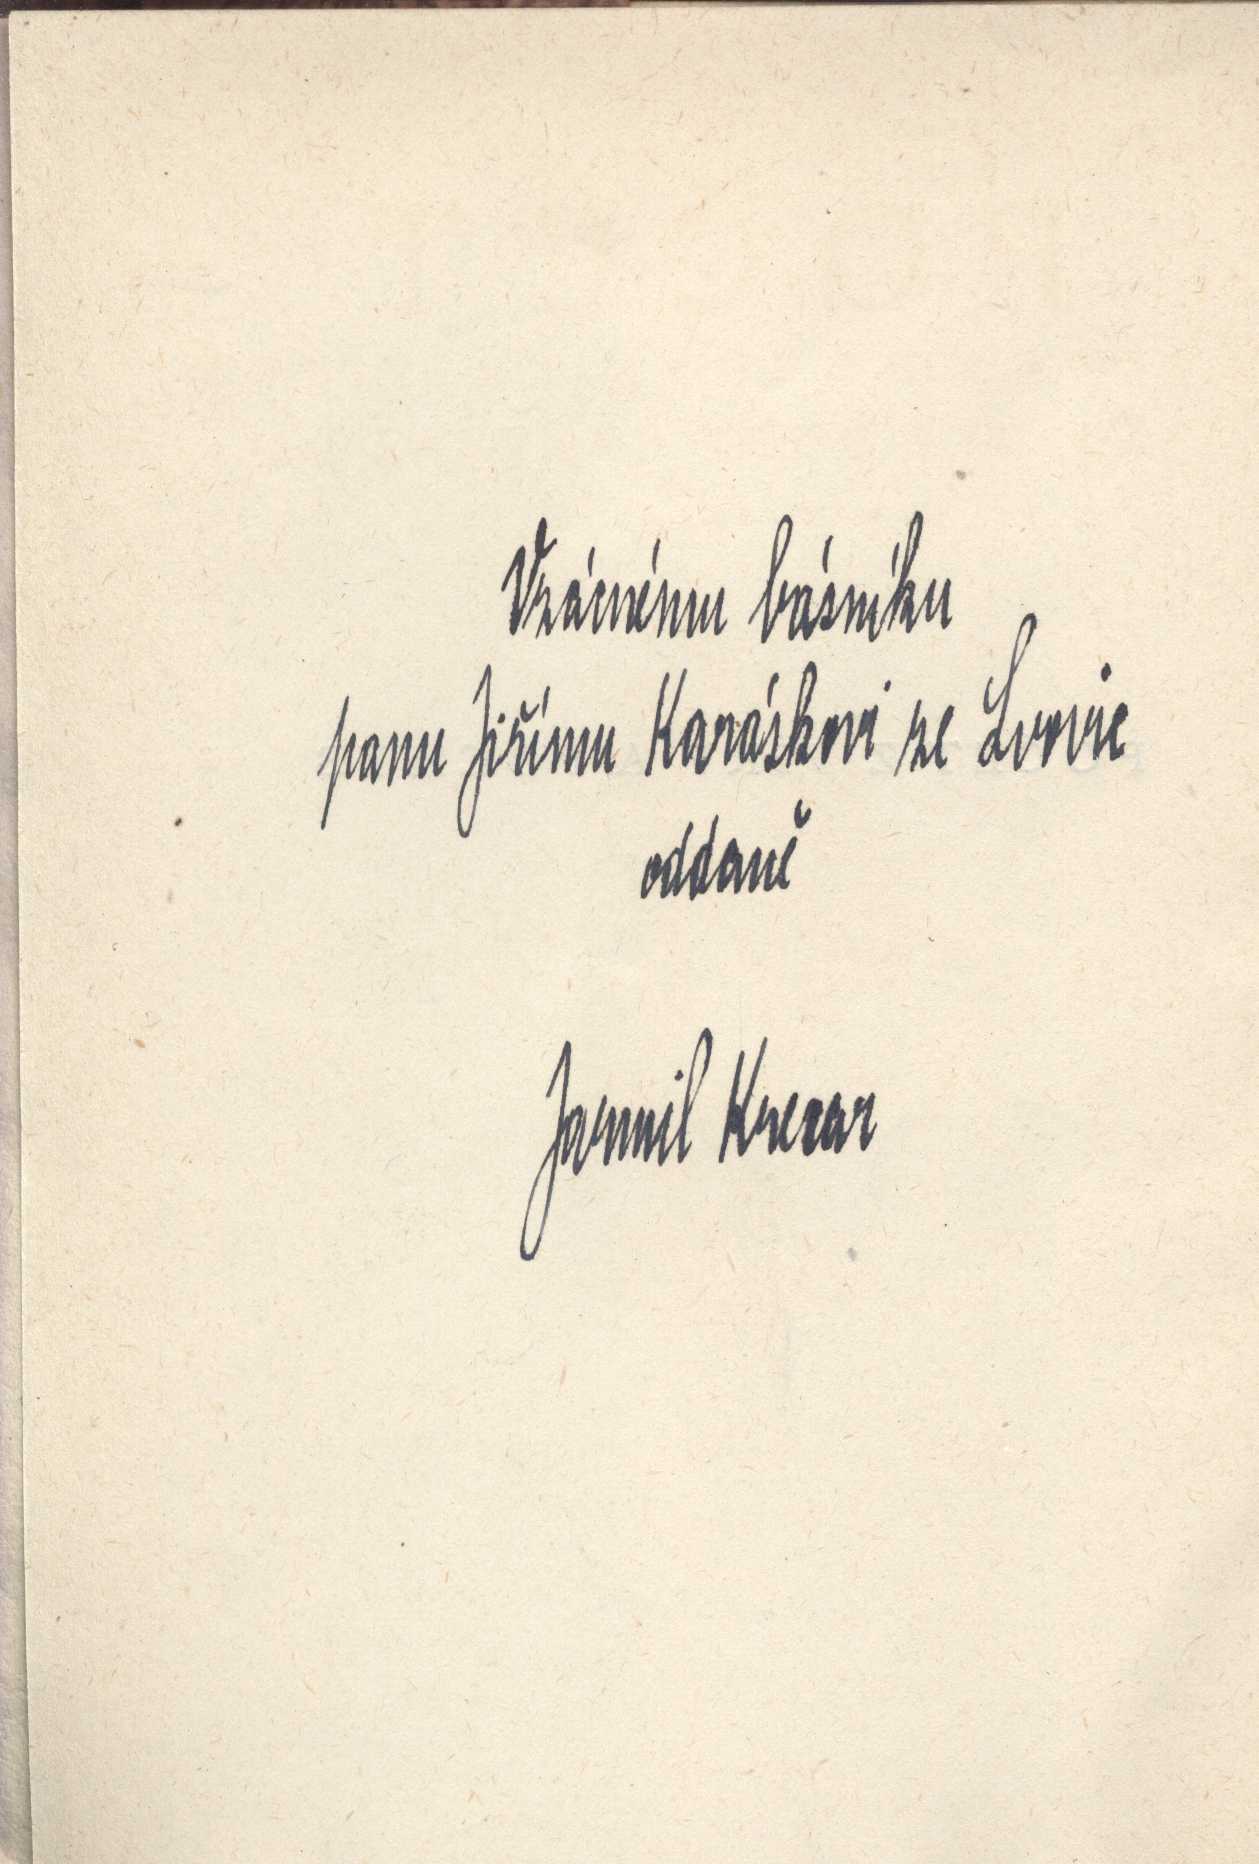 Vzácnému básníku
panu Jiřímu Karáskovi ze Lvovic
oddaně
Jarmil Krecar